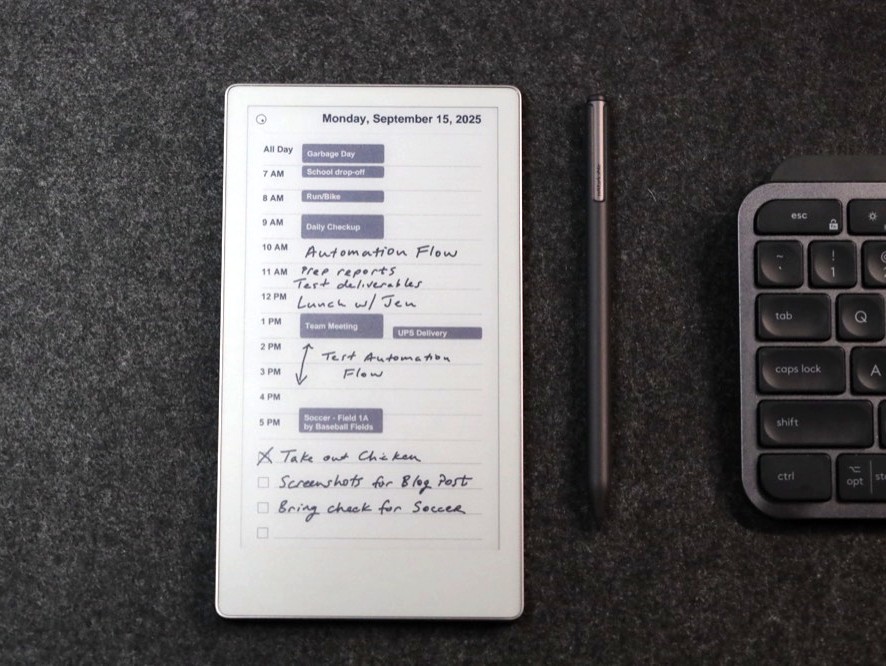 Monday, September 15, 2025
All Day Garbage Day
7 AM School drop-off
8 AM Run/Bike
9 AM Daily Checkup
10 AM Automation Flow
11 AM Prep reports
Test deliverables
12 PM Lunch w/ Jen
1 PM Team Meeting UPS Delivery
2 PM Test Automation
3 PM Flow
4 PM
5 PM Soccer - Field 1A
by Baseball Fields
Take out Chicken
Screenshots for Blog Post
Bring check for Soccer
esc
~ ! 1
tab Q
caps lock A
shift
ctrl opt